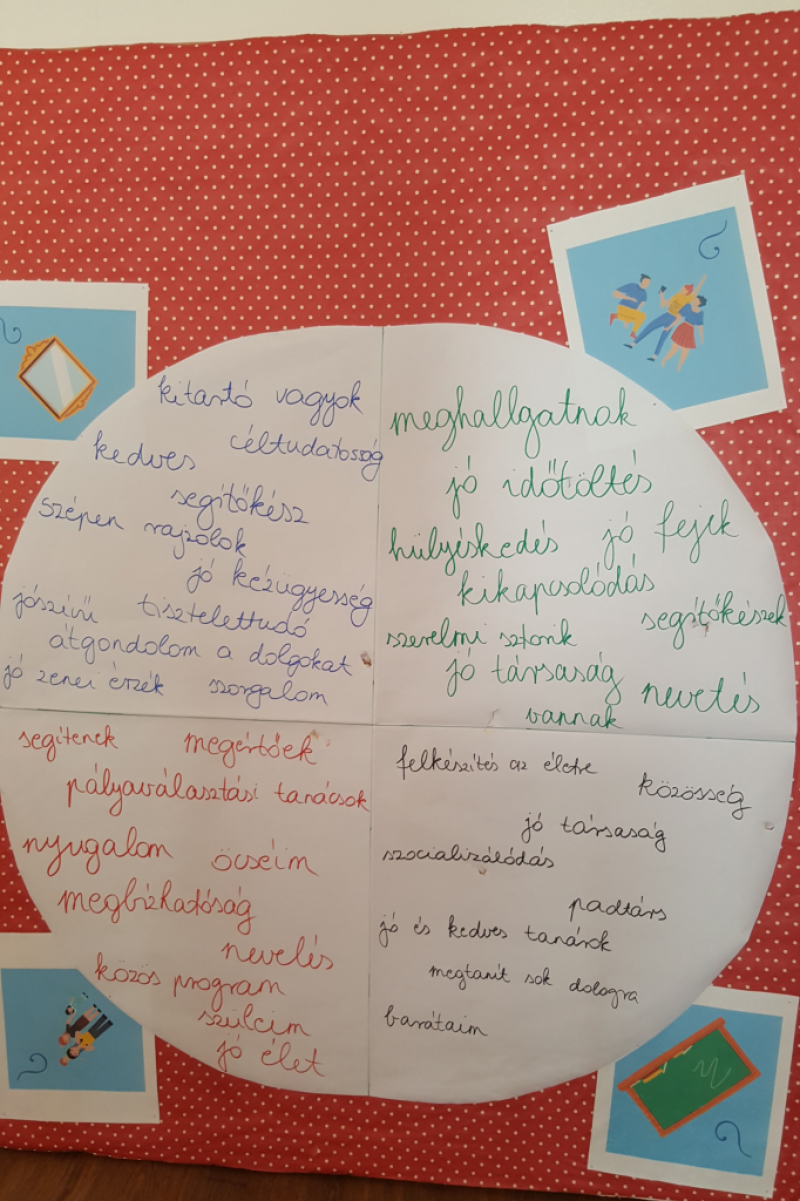 kitartó vagyok
céltudatosság
kedves
segítőkész
szépen rajzolok
jó kézügyesség
jószívű tisztelettudó
átgondolom a dolgokat
jó zenei érzék szorgalom
meghallgatnak
jó időtöltés
hülyéskedés jó fejek
kikapcsolódás
segítőkészek
szerelmi sztorik
jó társaság nevetés
vannak
segítenek megértőek
pályaválasztási tanácsok
nyugalom öcséim
megbízhatóság
nevelés
közös program
szüleim
jó élet
felkészítés az életre
közösség
jó társaság
szocializálódás
padtárs
jó és kedves tanárok
megtanít sok dologra
barátaim